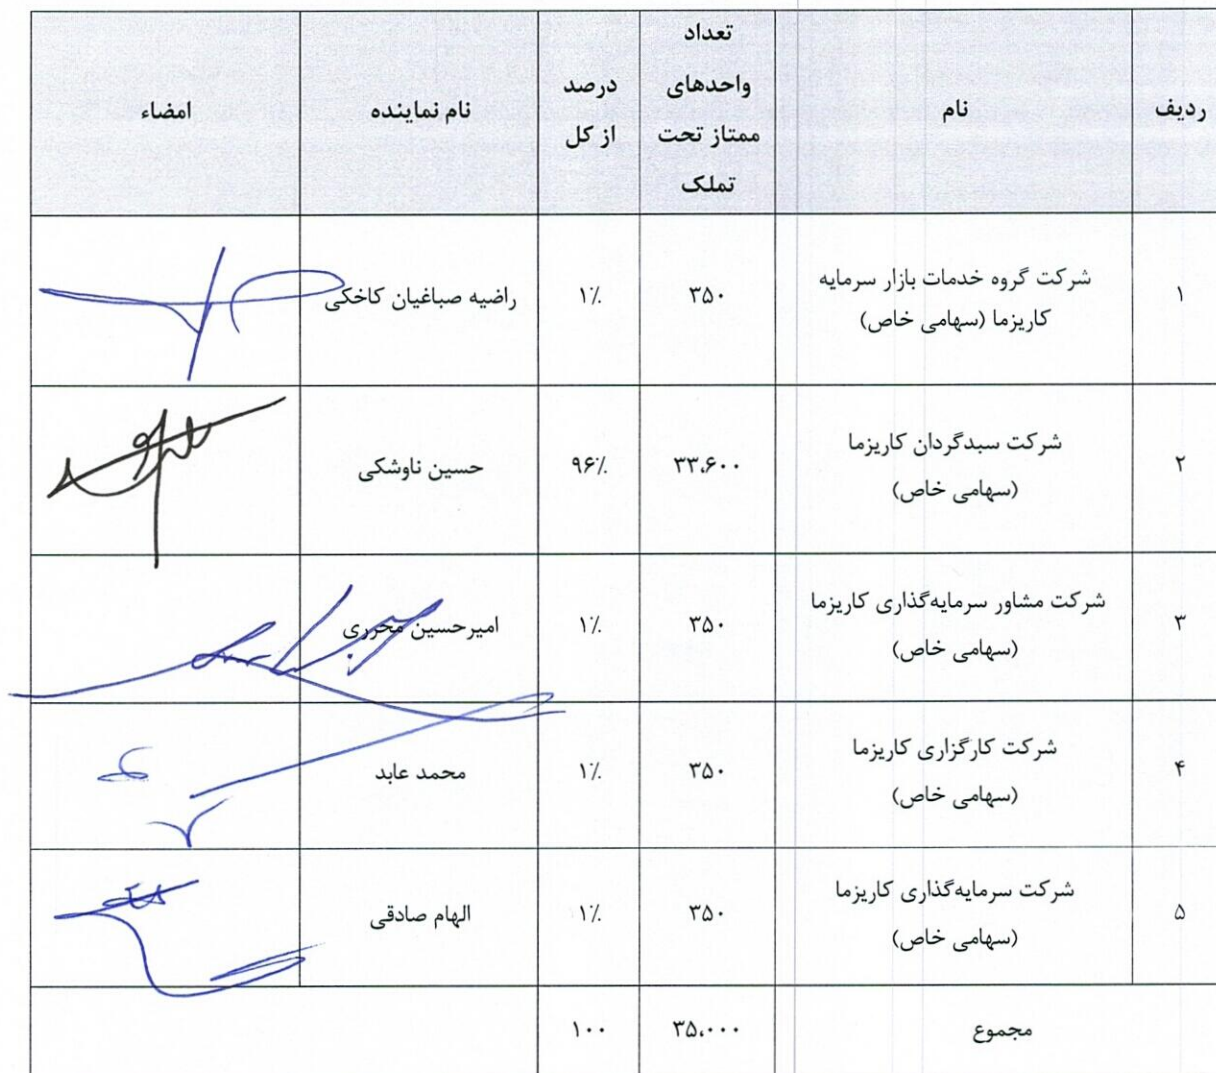 ردیف
نام
تعداد
واحدهای
ممتاز تحت
تملک
درصد
از کل
نام نماینده
امضاء
۱
شرکت گروه خدمات بازار سرمایه
کاریزما (سهامی خاص)
۳۵۰
۱٪
راضیه صباغیان کاخکی
۲
شرکت سبدگردان کاریزما
(سهامی خاص)
۳۳،۶۰۰
۹۶٪
حسین ناوشکی
۳
شرکت مشاور سرمایه‌گذاری کاریزما
(سهامی خاص)
۳۵۰
۱٪
امیرحسین محرری
۴
شرکت کارگزاری کاریزما
(سهامی خاص)
۳۵۰
۱٪
محمد عابد
۵
شرکت سرمایه‌گذاری کاریزما
(سهامی خاص)
۳۵۰
۱٪
الهام صادقی
مجموع
۳۵،۰۰۰
۱۰۰